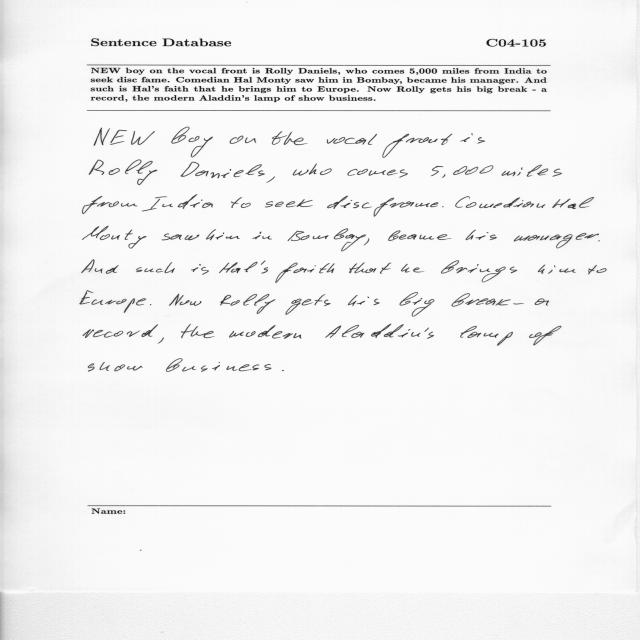 Sentence Database C04-105
NEW boy on the vocal front is Rolly Daniels, who comes 5,000 miles from India to
seek disc fame. Comedian Hal Monty saw him in Bombay, became his manager. And
such is Hal's faith that he brings him to Europe. Now Rolly gets his big break - a
record, the modern Aladdin's lamp of show business.
NEW boy on the vocal front is
Rolly Daniels, who comes 5,000 miles
from India to seek disc frame. Comedian Hal
Monty saw him in Bombay, became his manager.
And such is Hal's faith that he brings him to
Europe. Now Rolly gets his big break - a
record, the modern Aladdin's lamp of
show business.
Name: